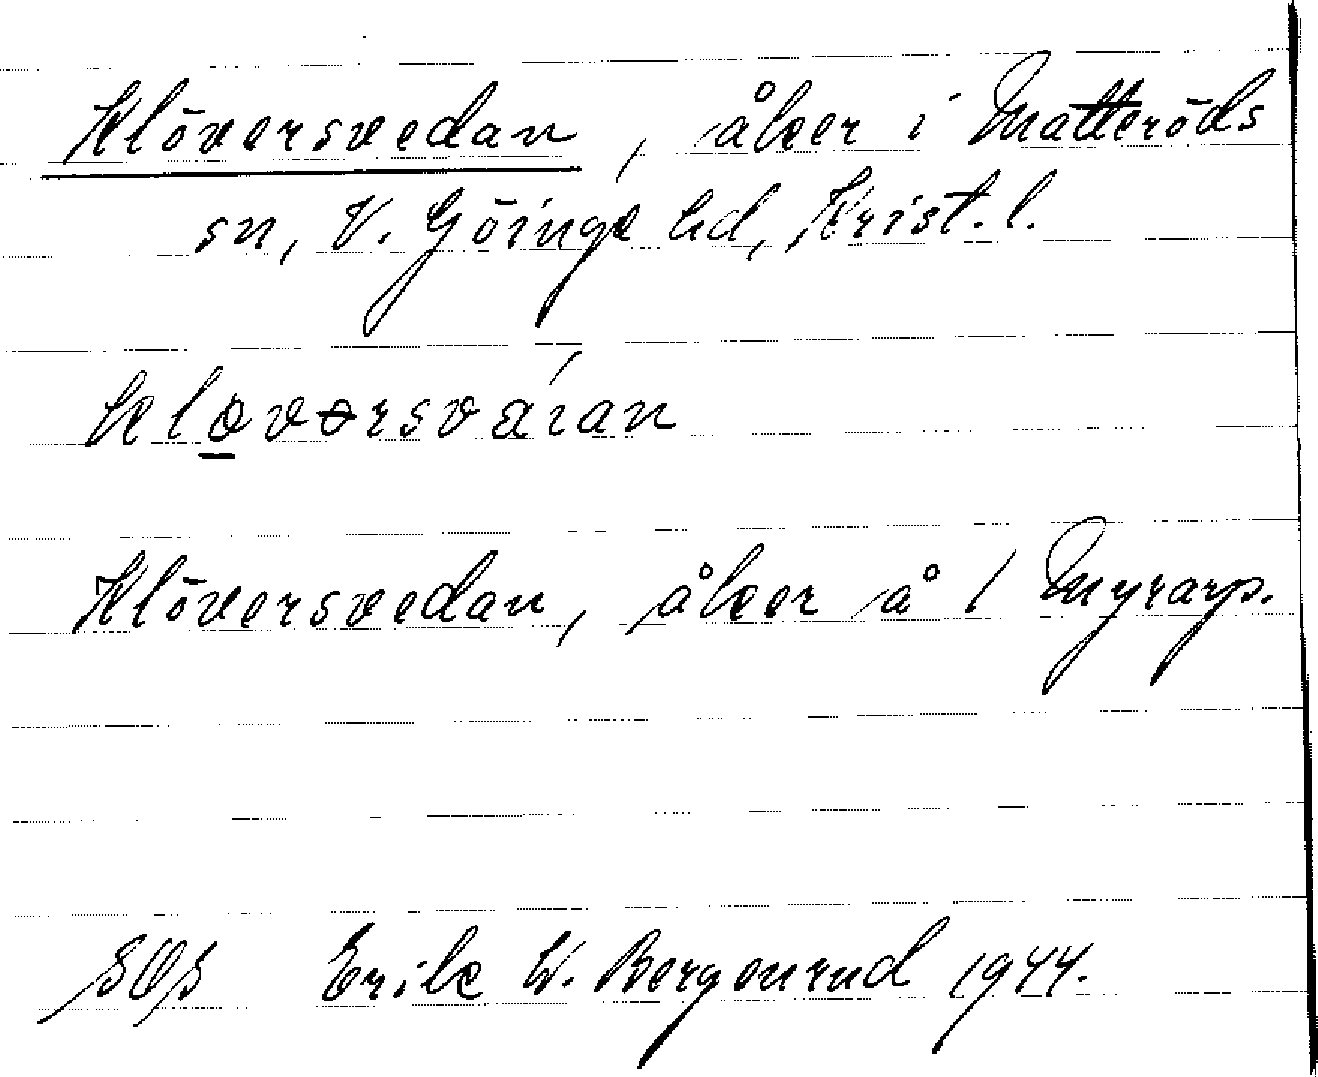 Klöversvedan, åker i Matteröds
sn, V. Göinge hd, Krist. l.
kløvərsváían
Klöversvedan, åker å 1 Myrarp.
SOS Erik W. Bergenrud 1944.